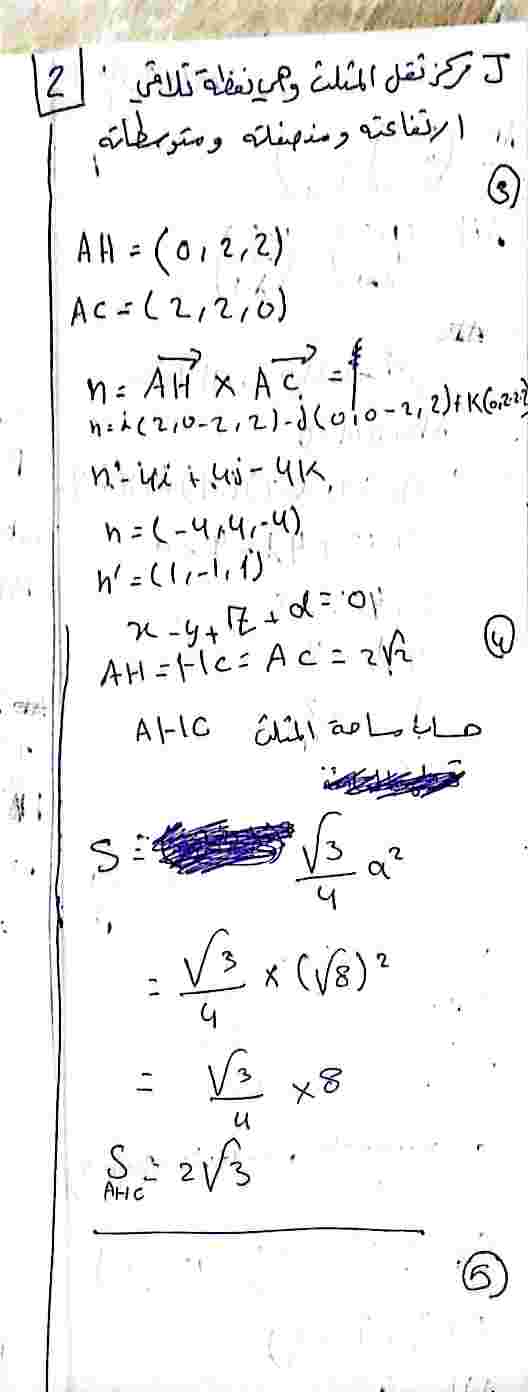 2
J مركز ثقل المثلث وهي نقطة تلاقي
ارتفاعته ومنصفاته ومتوسطاته
3
AH = (0, 2, 2)
AC = (2, 2, 0)
n = AH × AC =
n = i(2,0-2,2)-j(0,0-2,2)+K(0,2-2,2)
n = -4i + 4j - 4K
n = (-4, 4, -4)
n' = (1, -1, 1)
x - y + z + d = 0
4
AH = HC = AC = 2√2
حساب مساحة المثلث AHC
S = √3/4 a²
= √3/4 × (√8)²
= √3/4 × 8
S AHC = 2√3
5